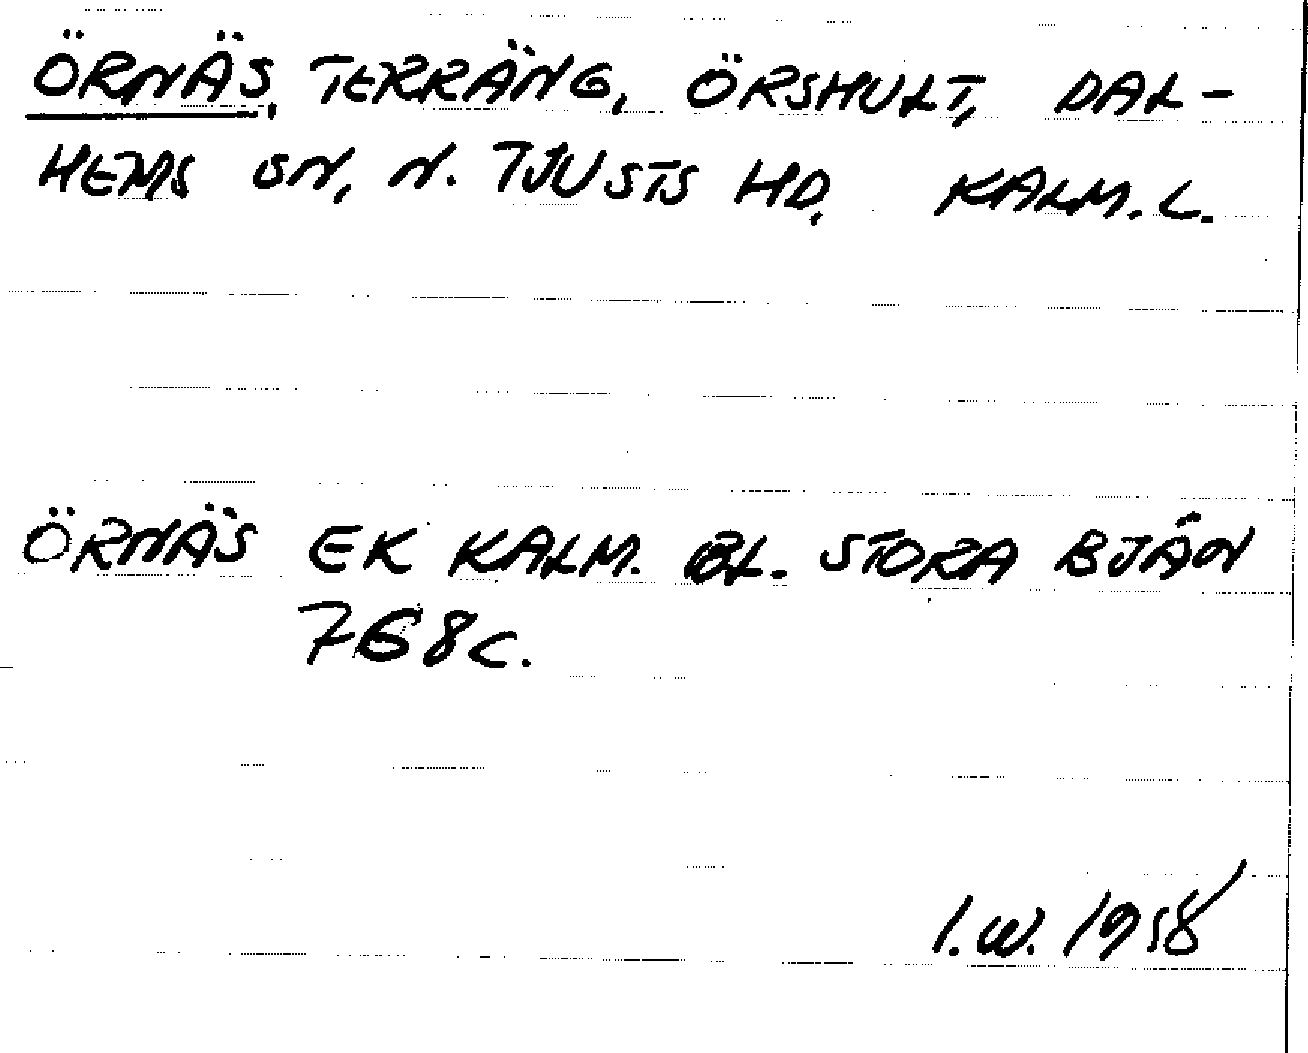 ÖRNÄS, TERRÄNG, ÖRSHULT, DAL-
HEMS SN, N. TJUSTS HD, KALM. L.
ÖRNÄS EK KALM. BL. STORA BJÄN
768c.
I.W. 1958